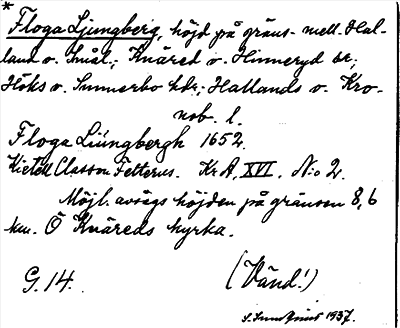 * Floga Ljungberg, höjd på gräns- mell. Hal-
land o. Smål.; Knäred o. Hinneryd sr;
Höks o. Sunnerbo hdr; Hallands o. Kro-
nob. l.
Floga Liüngbergh 1652.
Kietell Classon Felterus. KrA, XVI. N:o 2.
Möjl. avsågs höjden på gränsen 8,6
km. Ö Knäreds kyrka.
G. 14. (Vänd!)
1937.